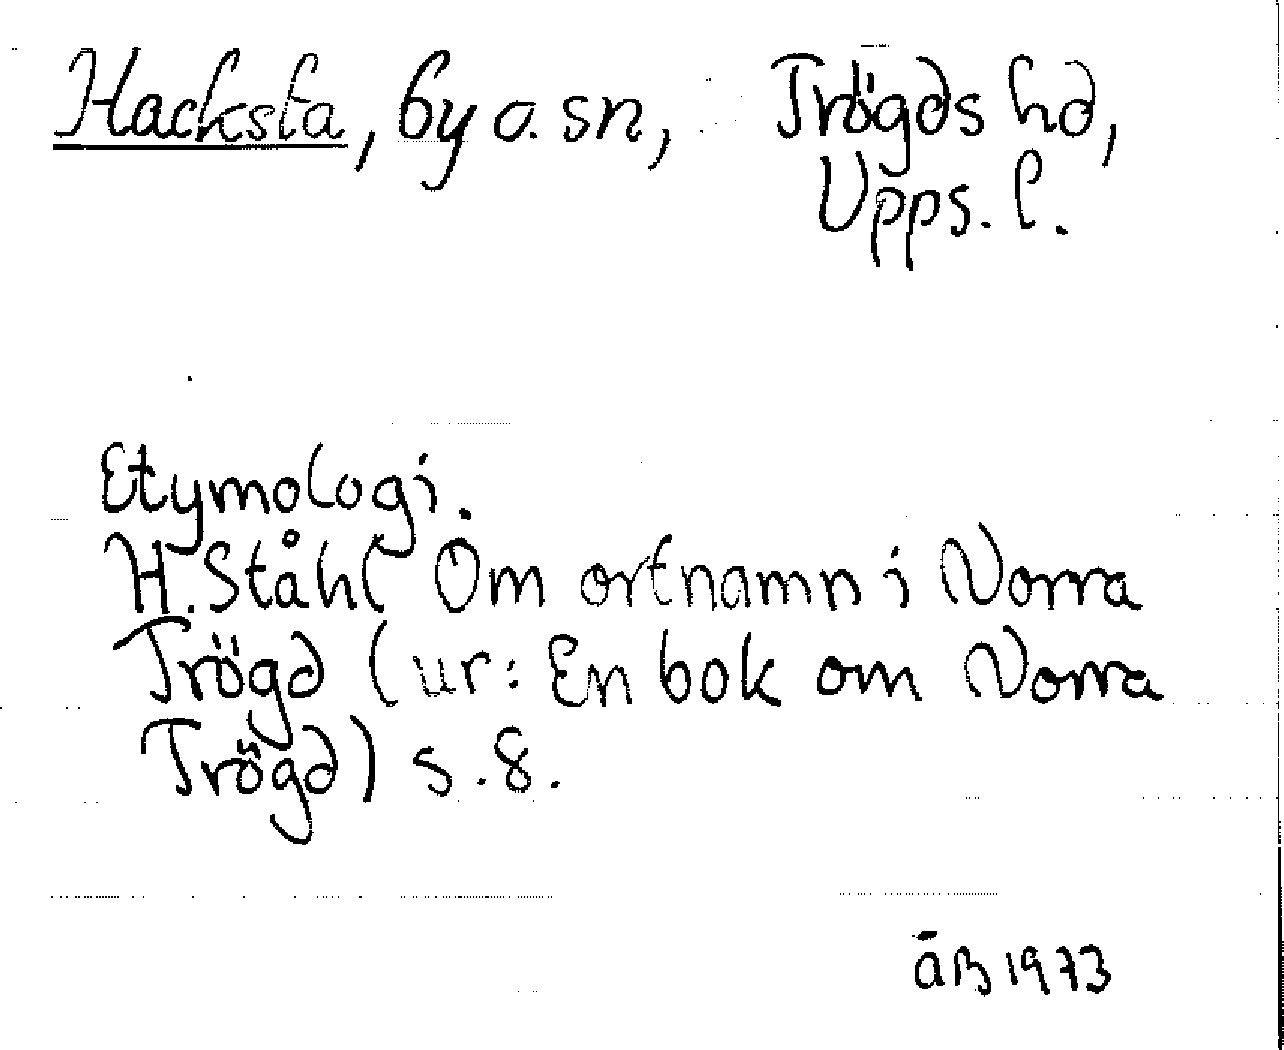 Hacksta, by o. sn, Trögds hd,
Upps. l.
Etymologi.
H. Ståhl Om ortnamn i Norra
Trögd (ur: En bok om Norra
Trögd) s. 8.
äB 1973